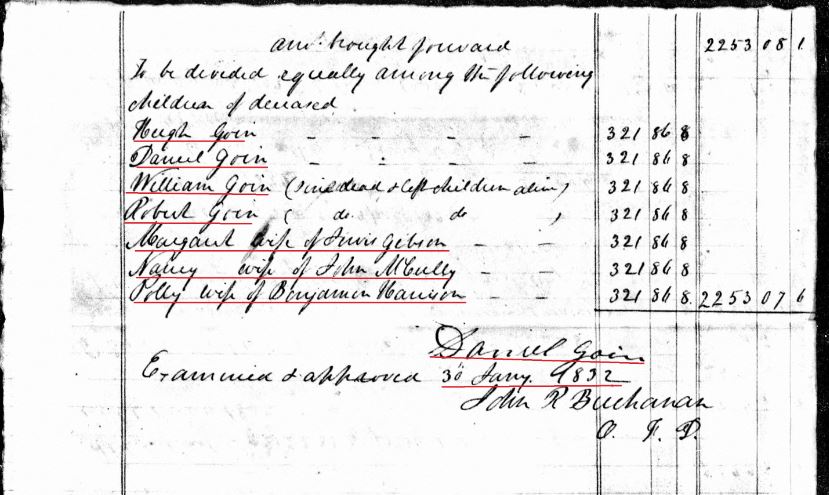 amt. brought forward 2253 08 1
To be divided equally among the following
children of deceased
Hugh Goin - - - - 321 86 8
Daniel Goin - - - - 321 86 8
William Goin (since dead & left children alive) 321 86 8
Robert Goin ( do. do ) 321 86 8
Margaret wife of Gibson - - 321 86 8
Nancy wife of John McCully - - 321 86 8
Polly wife of Benjamin Harrison - - 321 86 8 2253 07 6
Daniel Goin
Examined & approved 30 Jany. 1832
John R Buchanan
O. F. D.